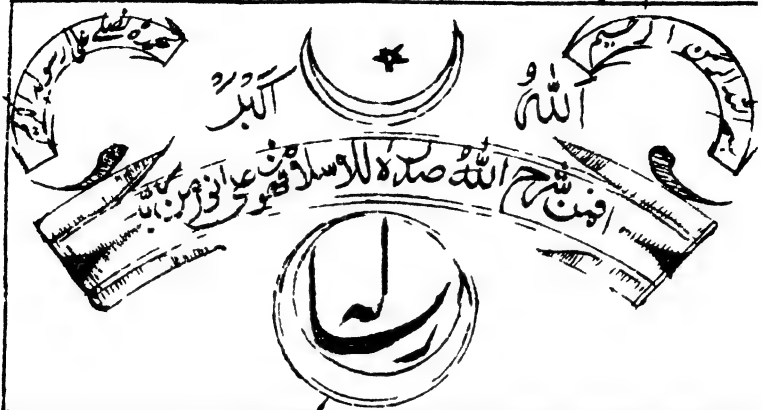 بسم الله الرحمن الرحيم
نحمده نصلي على رسوله الكريم
اَللهُ اَكْبَرْ
افمن شرح اللهُ صدره للاسلام فهو على نور من ربه
رساله